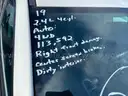 19
2.4L 4cyl.
Auto.
4WD
113,592
Right Front damage.
Center console broken.
Dirty interior.